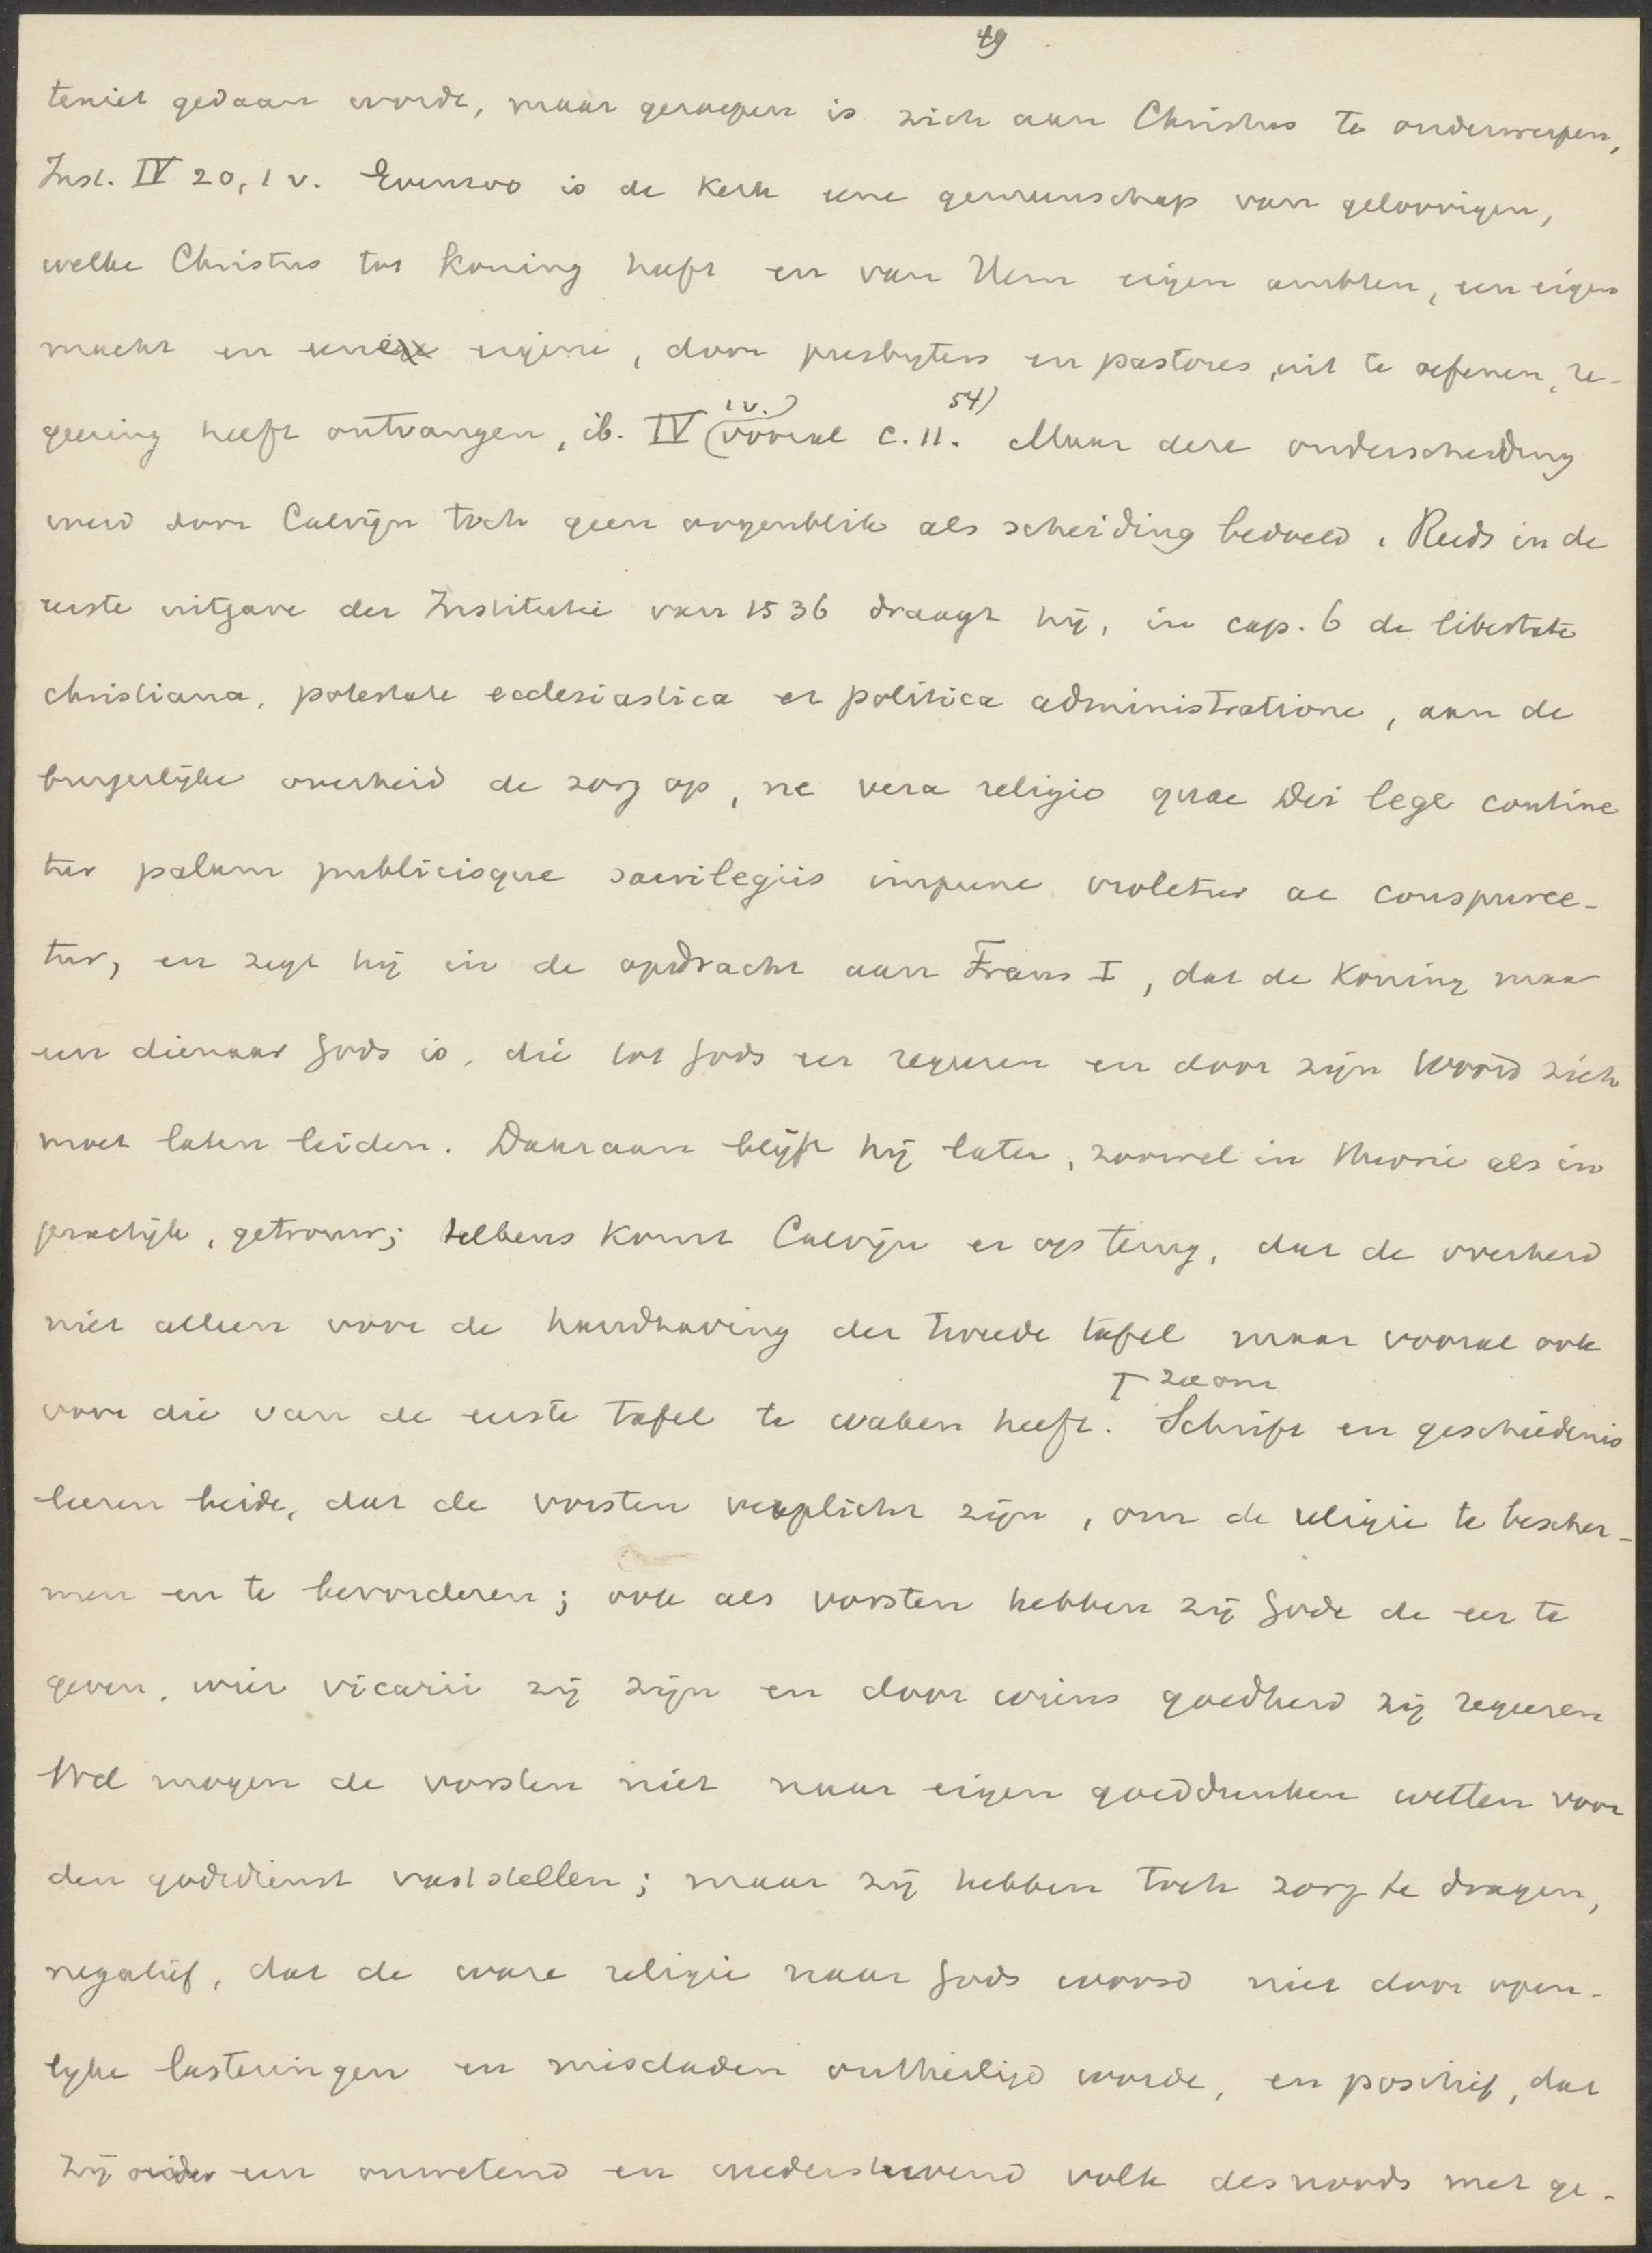 49
teniet gedaan wordt, maar geroepen is zich aan Christus te onderwerpen,
Inst. IV 20, 1 v. Evenzoo is de Kerk eene gemeenschap van geloovigen,
welke Christus tot Koning heeft en van Hem eigen ambten, een eigen
macht en eene eigene, door presbyters en pastores uit te oefenen, re-
geering heeft ontvangen, ib. IV 1 v.) (vooral c. 11. 54) Maar deze onderscheiding
werd door Calvijn toch geen oogenblik als scheiding bedoeld. Reeds in de
eerste uitgave der Institutie van 1536 draagt hij, in cap. 6 de libertate
christiana, potestate ecclesiastica et politica administratione, aan de
burgerlijke overheid de zorg op, ne vera religio quae Dei lege contine
tur palam publicisque sacrilegiis impune violetur ac conspurce-
tur, en zegt hij in de opdracht aan Frans I, dat de Koning maar
een dienaar Gods is, die tot Gods eer regeeren en door zijn Woord zich
moet laten leiden. Daaraan blijft hij later, zoowel in theorie als in
practijk, getrouw; telkens komt Calvijn er op terug, dat de overheid
niet alleen voor de handhaving der tweede tafel maar vooral ook
voor die van de eerste tafel te waken heeft. Schrift en geschiedenis
leeren beide, dat de vorsten verplicht zijn, om de religie te bescher-
men en te bevorderen; ook als vorsten hebben zij Gode de eer te
geven, wier vicarii zij zijn en door wiens goedheid zij regeeren
Wel mogen de vorsten niet naar eigen gooddunken wetten voor
den godsdienst vaststellen; maar zij hebben toch zorg te dragen,
negatief, dat de ware religie naar Gods woord niet door open-
lijke lasteringen en misdaden ontheiligd worde, en positief, dat
zij een onwetend en wederstrevend volk desnoods met ge-